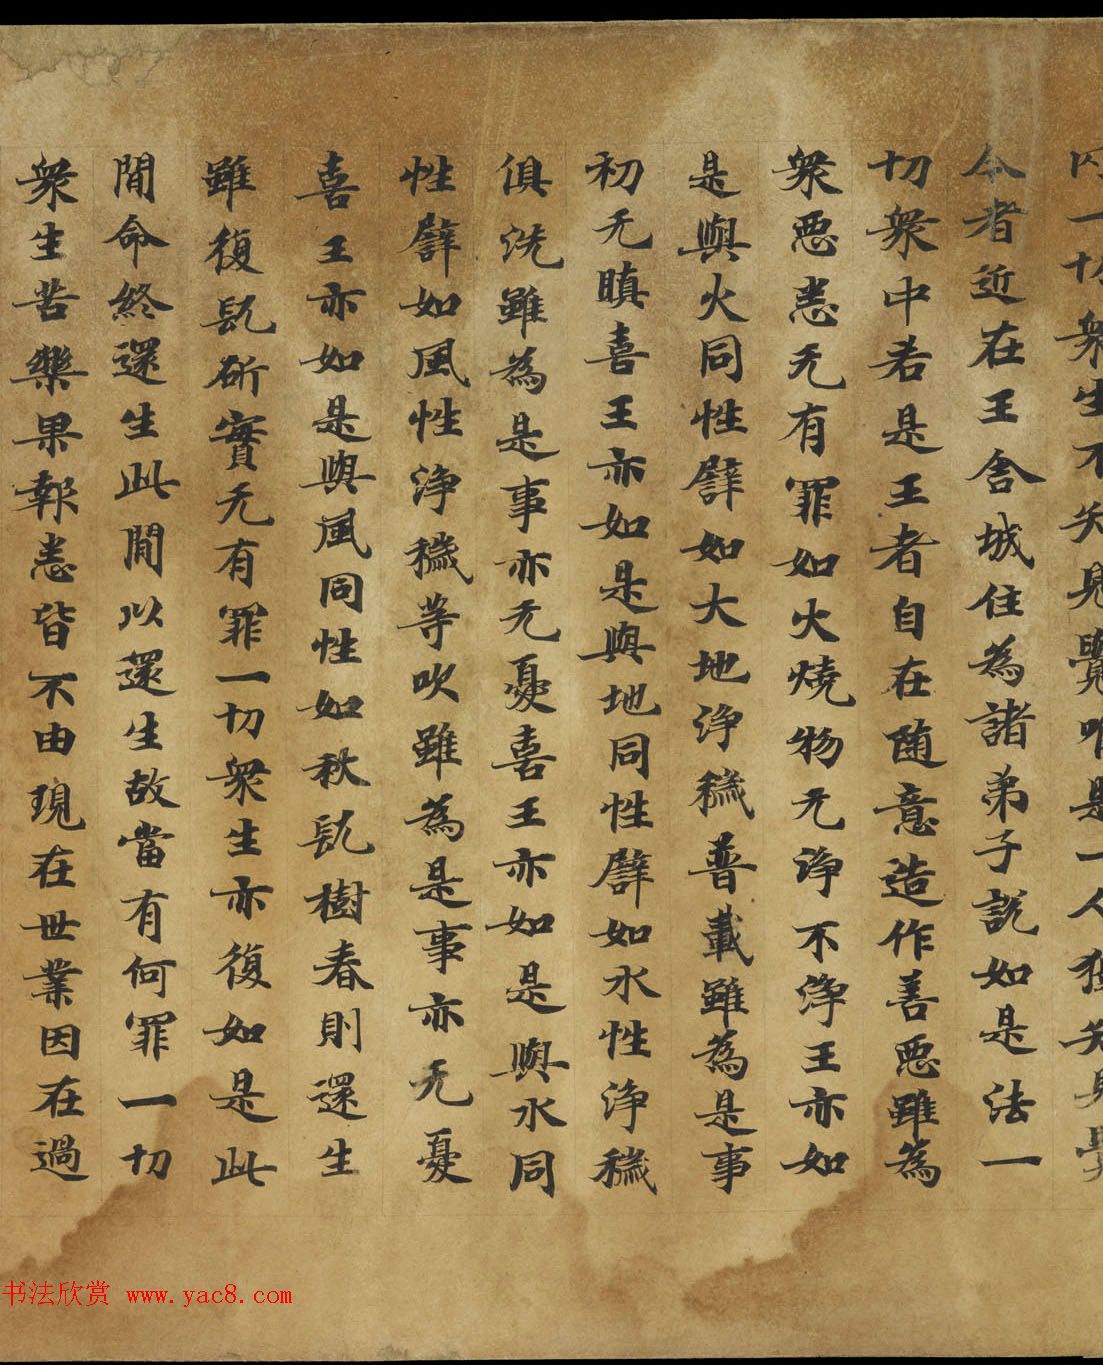 内一切衆生不知見覺唯是一人獨知見覺
今者近在王舍城住為諸弟子説如是法一
切衆中若是王者自在随意造作善惡雖為
衆惡悉无有罪如火燒物无浄不浄王亦如
是與火同性譬如大地浄穢普載雖為是事
初无瞋喜王亦如是與地同性譬如水性浄穢
俱洗雖為是事亦无憂喜王亦如是與水同
性譬如風性浄穢等吹雖為是事亦无憂
喜王亦如是與風同性如秋髡樹春則還生
雖復髡斫實无有罪一切衆生亦復如是此
間命終還生此間以還生故當有何罪一切
衆生苦樂果報悉皆不由現在世業因在過
书法欣赏 www.yac8.com